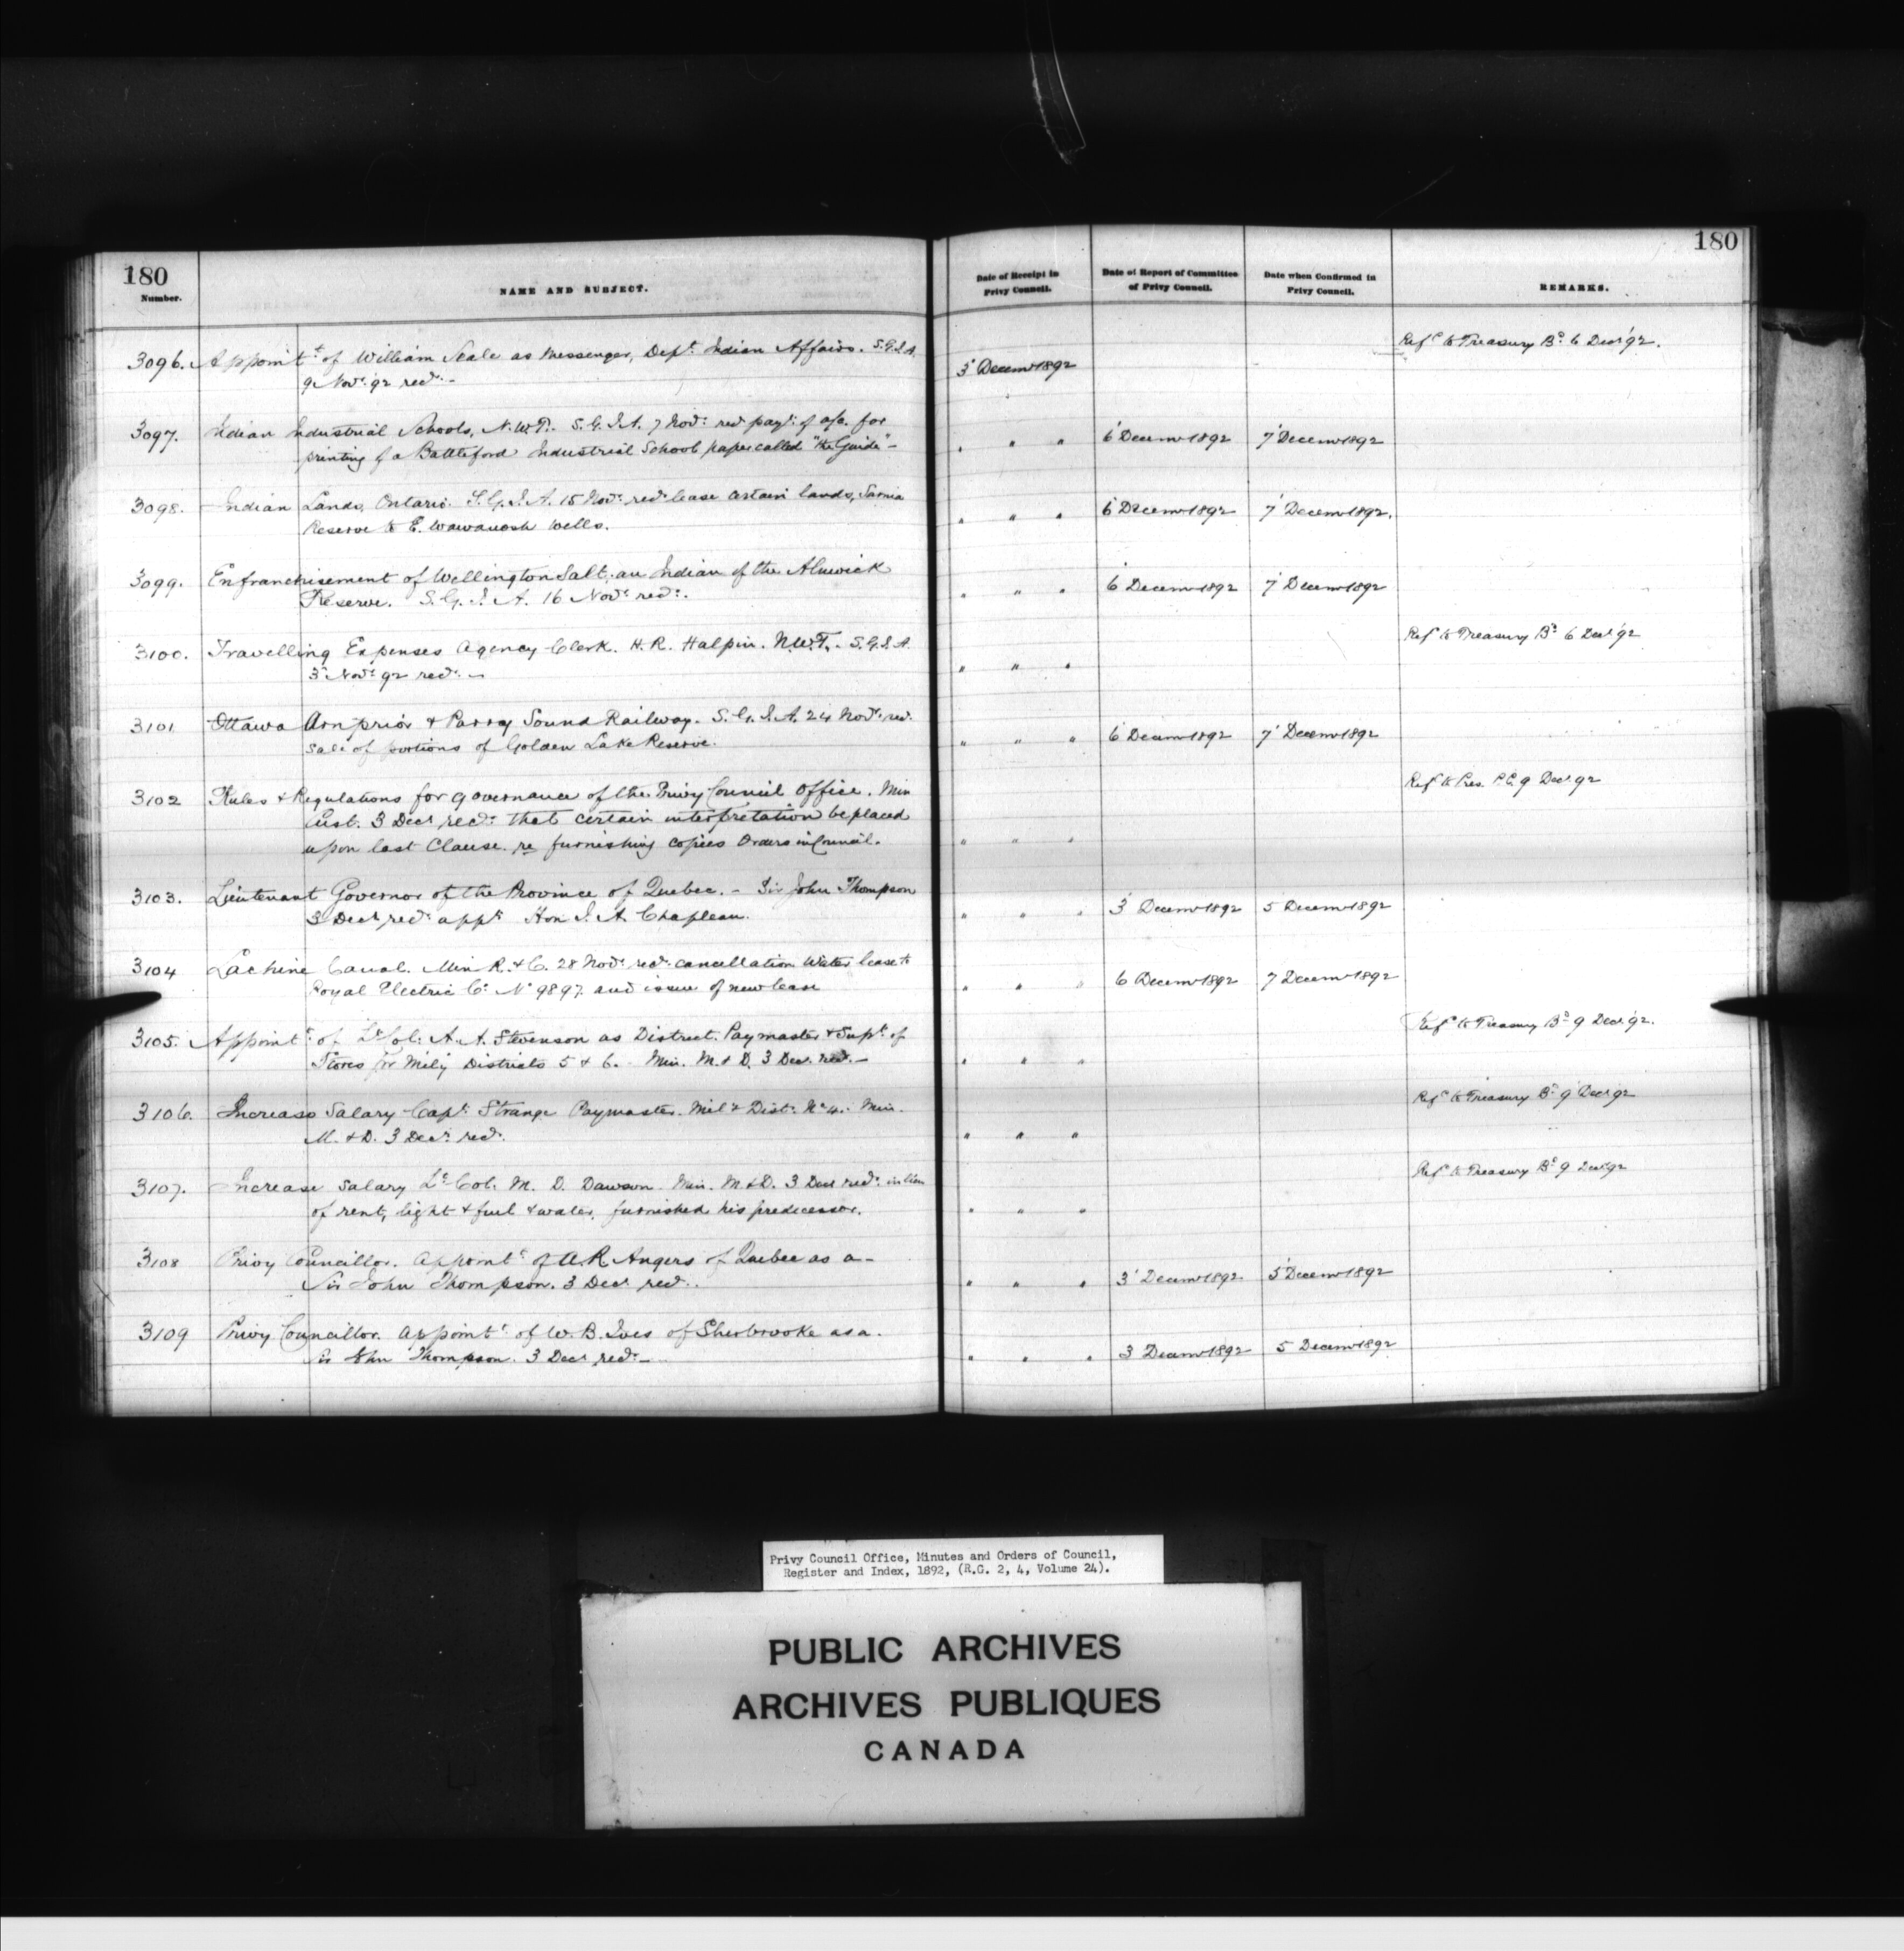 180
180
Number.
NAME AND SUBJECT.
Date of Receipt in Privy Council.
Date of Report of Committee of Privy Council.
Date when Confirmed in Privy Council.
REMARKS.
3096. Appoint^t of William Seale as Messenger, Dep^t Indian Affairs. S.G.I.A. Ref^d to Treasury B^d 6 Dec^r '92.
9 Nov^r '92 rec^d:– 3' Decem^r 1892
3097. Indian Industrial Schools, N.W.T. S.G.I.A. 7 Nov^r: rec^d pay^t: of a/c. for
printing of a Battleford Industrial School paper called "the Guide"– " " " 6' Decem^r 1892 7' Decem^r 1892
3098. Indian Lands, Ontario. S.G.I.A. 15 Nov^r: rec^d: lease certain lands, Sarnia
Reserve to E. Wawanosh Wells. " " " 6' Decem^r 1892 7' Decem^r 1892.
3099. Enfranchisement of Wellington Salt, an Indian of the Alnwick
Reserve. S.G.I.A. 16 Nov^r: rec^d:. " " " 6' Decem^r 1892 7' Decem^r 1892
3100. Travelling Expenses Agency Clerk. H.R. Halpin. N.W.T. S.G.I.A. Ref^d to Treasury B^d: 6 Dec^r '92
3 Nov^r: 92 rec^d:– " " "
3101 Ottawa Arnprior & Parry Sound Railway. S.G.I.A. 24 Nov^r: rec^d:
sale of portions of Golden Lake Reserve. " " " 6' Decem^r 1892 7' Decem^r 1892
3102 Rules & Regulations for governance of the Privy Council Office. Min Ref^d to Pres. P.C. 9 Dec^r 92
Cust. 3 Dec^r rec^d: that certain interpretation be placed
upon last Clause re furnishing copies Orders in Council. " " "
3103. Lieutenant Governor of the Province of Quebec. – Sir John Thompson
3 Dec^r rec^d: app^t: Hon J. A. Chapleau. " " " 3' Decem^r 1892 5 Decem^r 1892
3104 Lachine Canal. Min R. & C. 28 Nov^r: rec^d: cancellation Water lease to
Royal Electric C^o: N^o 9897. and issue of new lease " " " 6 Decem^r 1892 7 Decem^r 1892
3105. Appoint^t: of L^t Col: A. A. Stevenson as District Paymaster & Sup^t of Ref^d to Treasury B^d 9 Dec^r '92.
Stores for Mil^y Districts 5 & 6. Min. M. & D. 3 Dec^r. rec^d.– " " "
3106. Increase Salary Cap^t Strange Paymaster. Mil^y Dist: N^o 4. Min. Ref^d to Treasury B^d 9 Dec^r 92
M. & D. 3 Dec^r rec^d. " " "
3107. Increase Salary L^t Col. M. D. Dawson Min. M & D. 3 Dec^r rec^d: in lieu Ref^d to Treasury B^d 9 Dec^r 92
of rent, light & fuel & water, furnished his predecessor. " " "
3108 Privy Councillor. Appoint^t of A. R. Angers of Quebec as a –
Sir John Thompson. 3 Dec^r rec^d. " " " 3' Decem^r 1892 5' Decem^r 1892
3109 Privy Councillor. Appoint^t of W. B. Ives of Sherbrooke as a.
Sir John Thompson. 3 Dec^r rec^d:– " " " 3 Decem^r 1892 5 Decem^r 1892
Privy Council Office, Minutes and Orders of Council,
Register and Index, 1892, (R.G. 2, 4, Volume 24).
PUBLIC ARCHIVES
ARCHIVES PUBLIQUES
CANADA